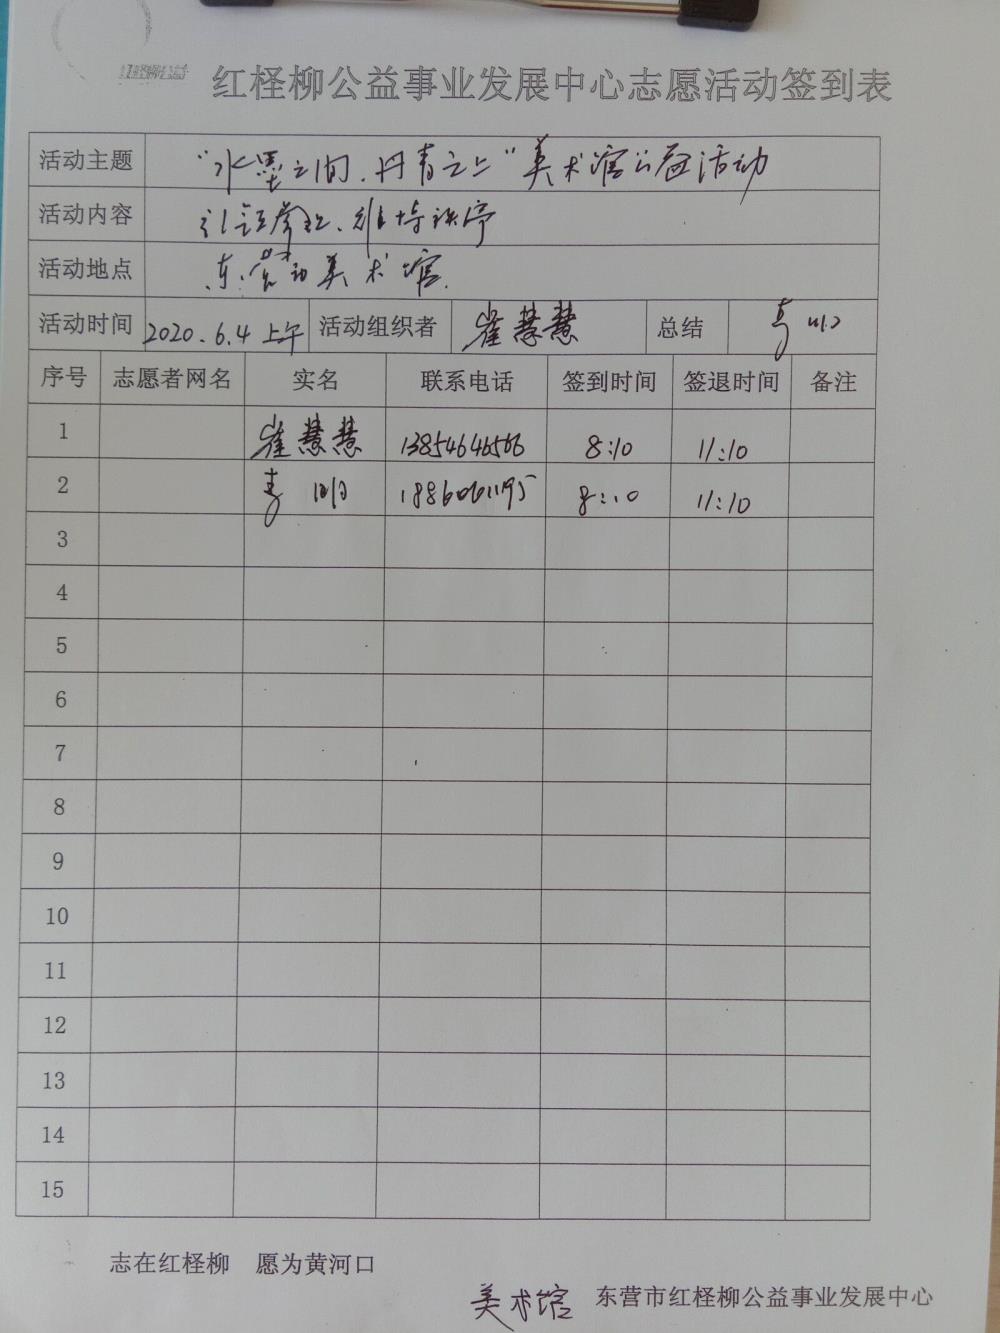 红柽柳公益
红柽柳公益事业发展中心志愿活动签到表
活动主题 “水墨之间、丹青之上”美术馆公益活动
活动内容 维持秩序
活动地点 东营市美术馆
活动时间 2020.6.4 上午 活动组织者 崔慧慧 总结
序号 志愿者网名 实名 联系电话 签到时间 签退时间 备注
1 崔慧慧 13854646566 8:10 11:10
2 明 18860611195 8:10 11:10
3
4
5
6
7
8
9
10
11
12
13
14
15
志在红柽柳 愿为黄河口
美术馆 东营市红柽柳公益事业发展中心